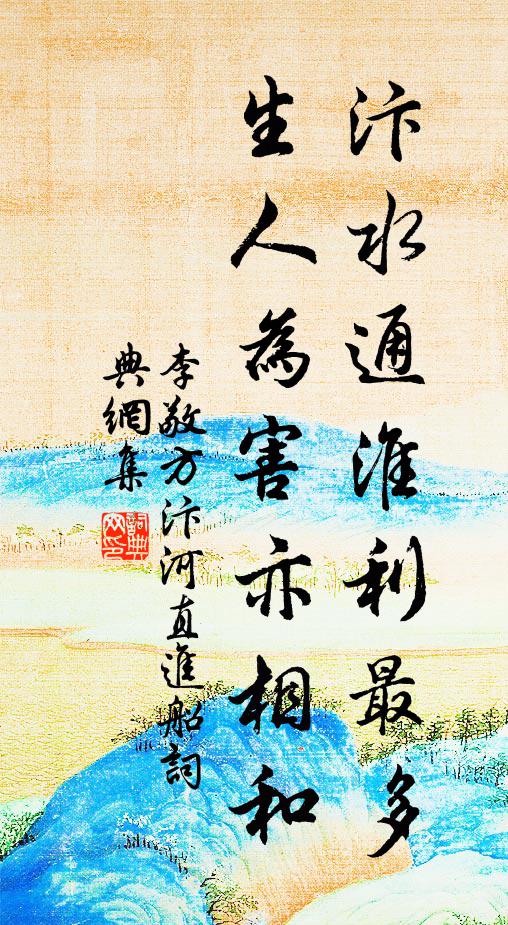 汴水通淮利最多
生人為害亦相和
李敬方汴河直進船詞
典網集
詞典网印